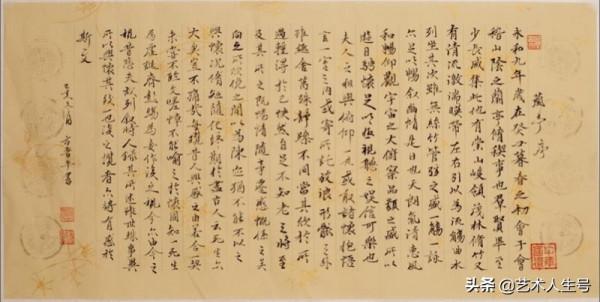 蘭亭序
永和九年歲在癸丑暮春之初會于會
稽山陰之蘭亭脩稧事也群賢畢至
少長咸集此地有崇山峻領茂林脩竹又
有清流激湍映帶左右引以為流觴曲水
列坐其次雖無絲竹管弦之盛一觴一詠
亦足以暢敘幽情是日也天朗氣清惠風
和暢仰觀宇宙之大俯察品類之盛所以
遊目騁懷足以極視聽之娛信可樂也
夫人之相與俯仰一世或取諸懷抱悟
言一室之內或寄所託放浪形骸之外
雖趣舍萬殊靜躁不同當其欣於所
遇暫得於己快然自足不知老之將至
及其所之既惓情隨事遷感慨係之矣
向之所欣俛仰之間以為陳迹猶不能不以之
興懷況脩短隨化終期於盡古人云死生亦
大矣豈不痛哉每攬昔人興感之由若合一契
未嘗不臨文嗟悼不能喻之於懷固知一死生
為虛誕齊彭殤為妄作後之視今亦由今之
視昔悲夫故列敘時人錄其所述雖世殊事異
所以興懷其致一也後之攬者亦將有感於
斯文
头条 @艺术人生号